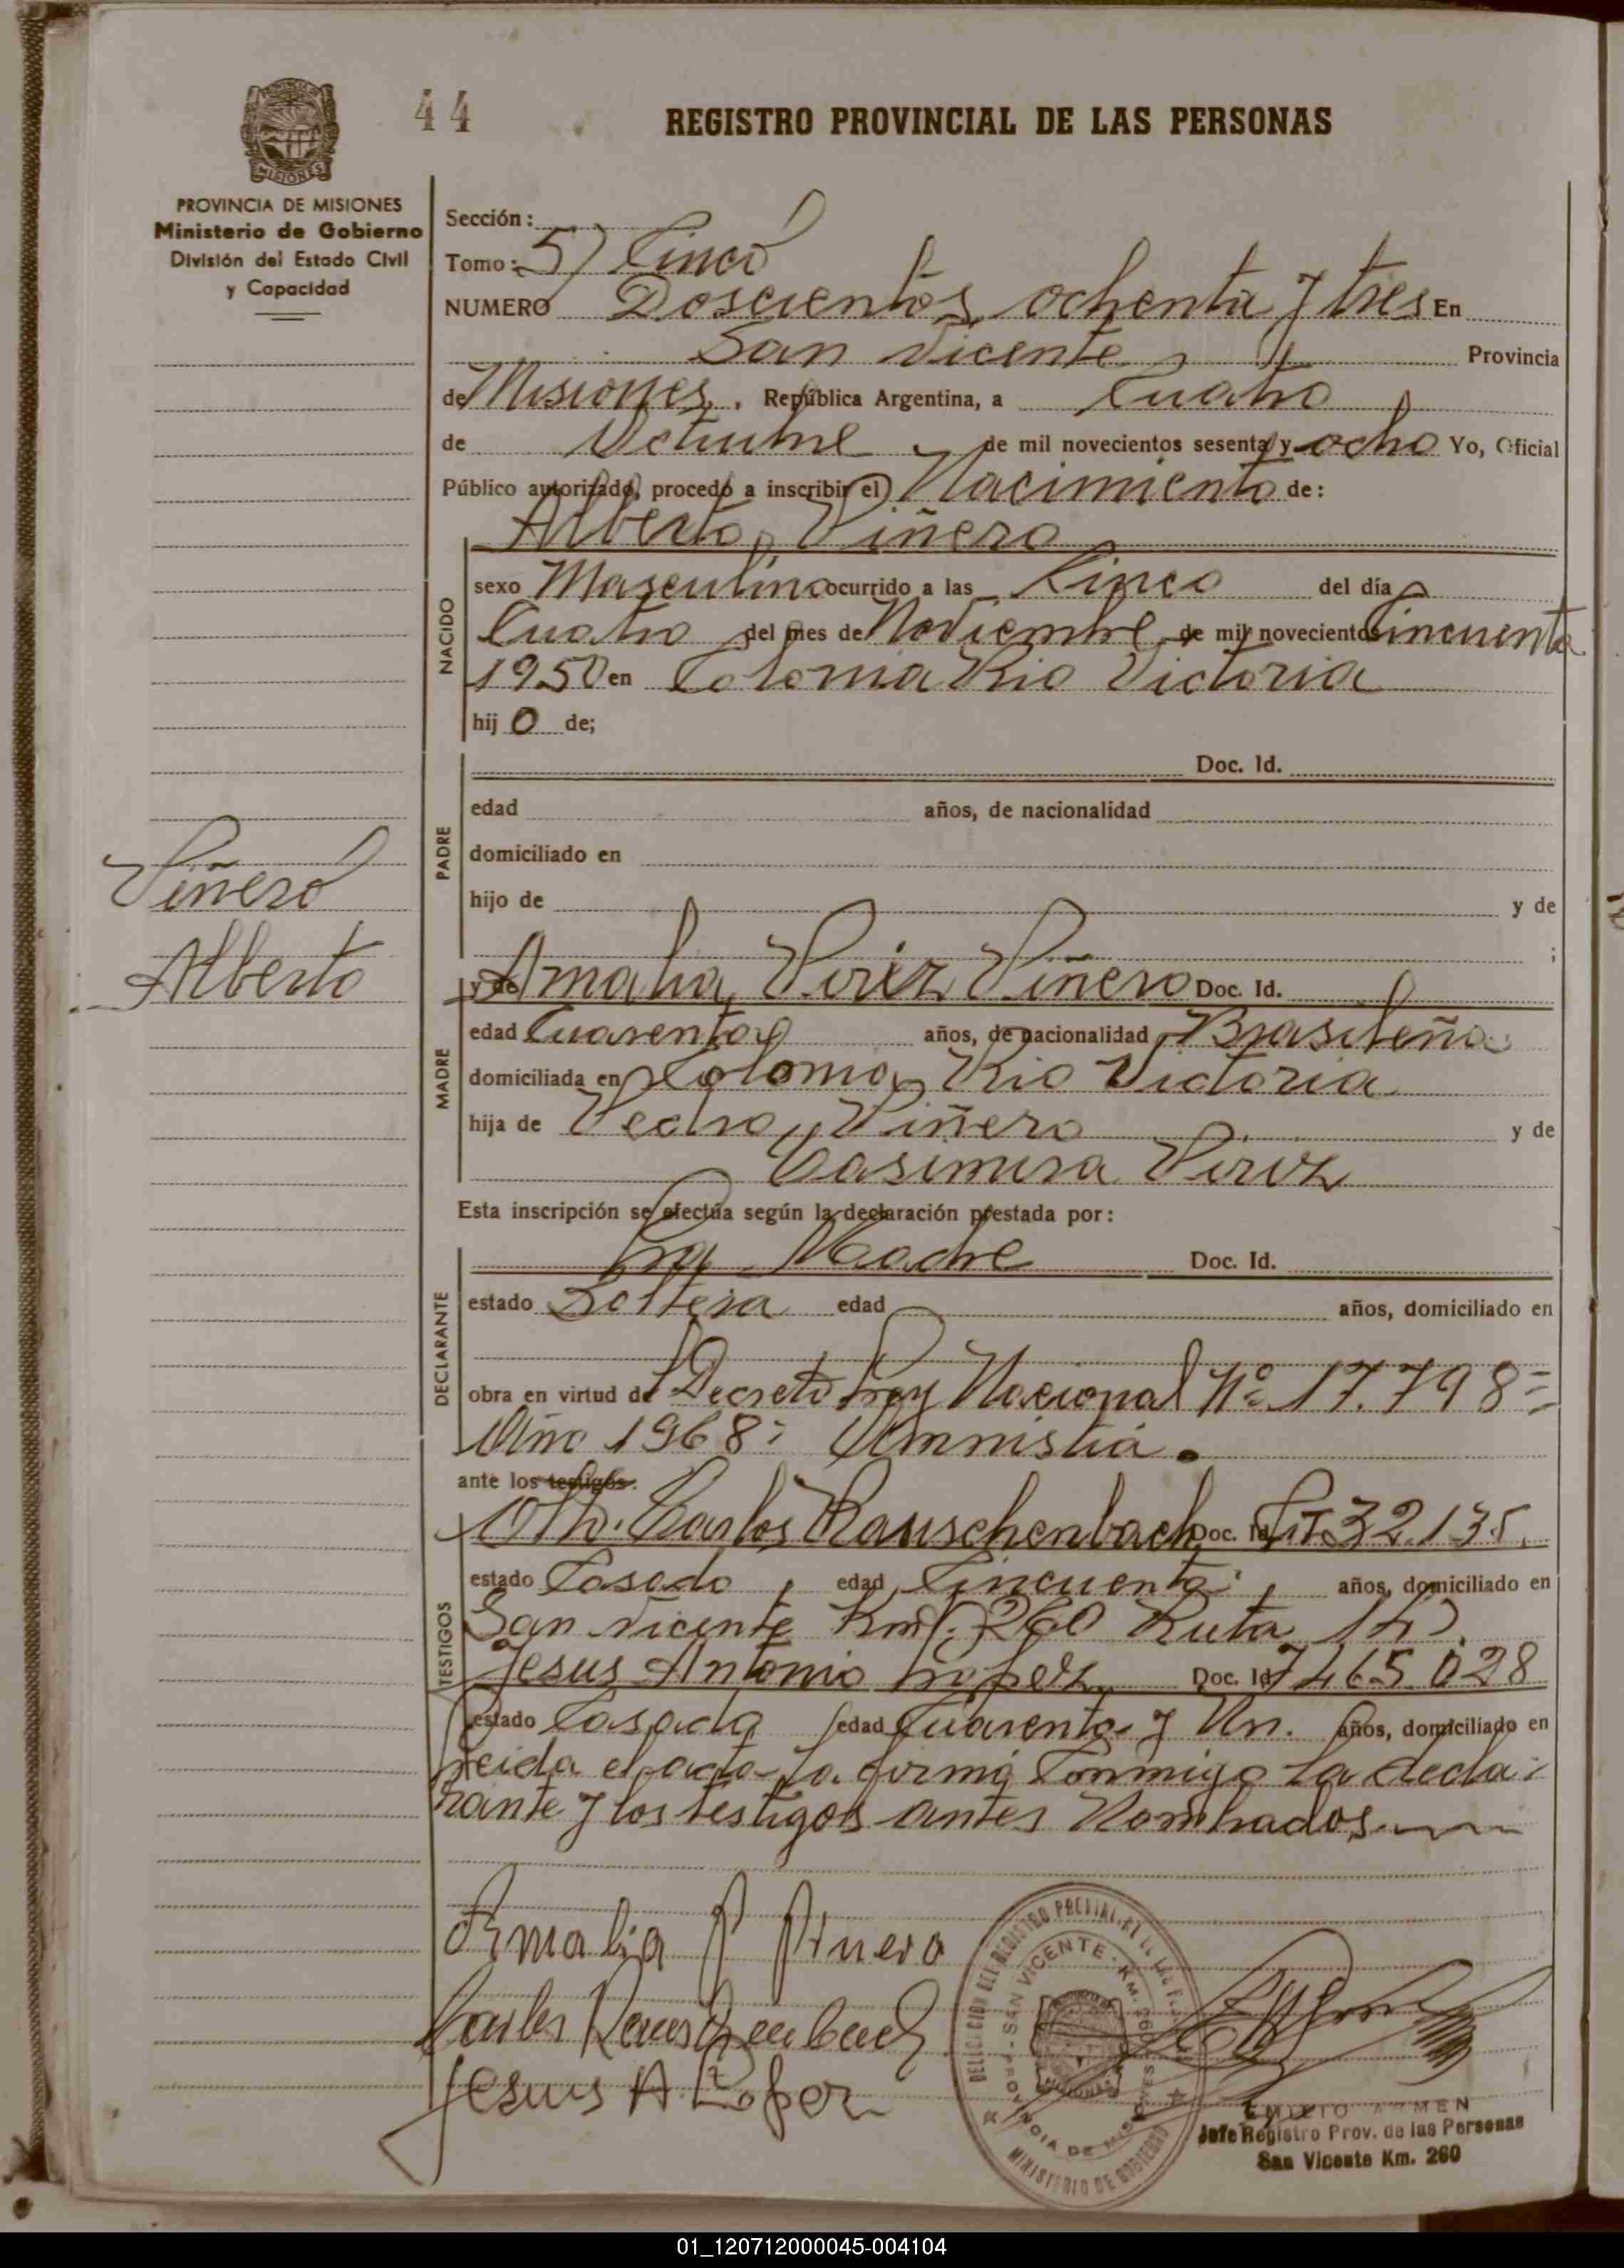 44
REGISTRO PROVINCIAL DE LAS PERSONAS
MISIONES
PROVINCIA DE MISIONES
Ministerio de Gobierno
División del Estado Civil
y Capacidad
Sección:
Tomo: 5) Cinco
NUMERO Doscientos ochenta y tres En
San Vicente Provincia
de Misiones, República Argentina, a Cuatro
de Octubre de mil novecientos sesenta y ocho Yo, Oficial
Público autorizado, procedo a inscribir el Nacimiento de:
Alberto Piñero
NACIDO
sexo Masculino ocurrido a las Cinco del día
Cuatro del mes de Noviembre de mil novecientos Cincuenta
1950 en Colonia Rio Victoria
hij o de;
PADRE
Doc. Id.
edad años, de nacionalidad
domiciliado en
hijo de y de
;
Piñero
Alberto
MADRE
y de Amalia Pirez Piñero Doc. Id.
edad Cuarenta años, de nacionalidad Brasileña
domiciliada en Colonia Rio Victoria
hija de Pedro Piñero y de
Casimira Pirez
Esta inscripción se efectúa según la declaración prestada por:
DECLARANTE
La Madre Doc. Id.
estado Soltera edad años, domiciliado en
obra en virtud de Decreto Ley Nacional Nº 17.798=
Año 1968= Amnistia.
ante los testigos:
TESTIGOS
Carlos Rauschenbach Doc. Id. 32.135.
estado Casado, edad Cincuenta, años, domiciliado en
San Vicente Km. 260 Ruta 14).
Jesus Antonio Lopez Doc. Id 7465.028
estado Casado edad Cuarenta y Un. años, domiciliado en
Leida el acta la firma Conmigo la decla=
rante y los testigos antes Nombrados.
Amalia P Pinero
Carlos Rauschenbach
Jesus A. Lopez
DELEGACION DEL REGISTRO PROVINCIAL DE LAS PERSONAS
SAN VICENTE - KM. 260
PROVINCIA DE MISIONES
MINISTERIO DE GOBIERNO
EMILIO ARMEN
Jefe Registro Prov. de las Personas
San Vicente Km. 260
01_120712000045-004104